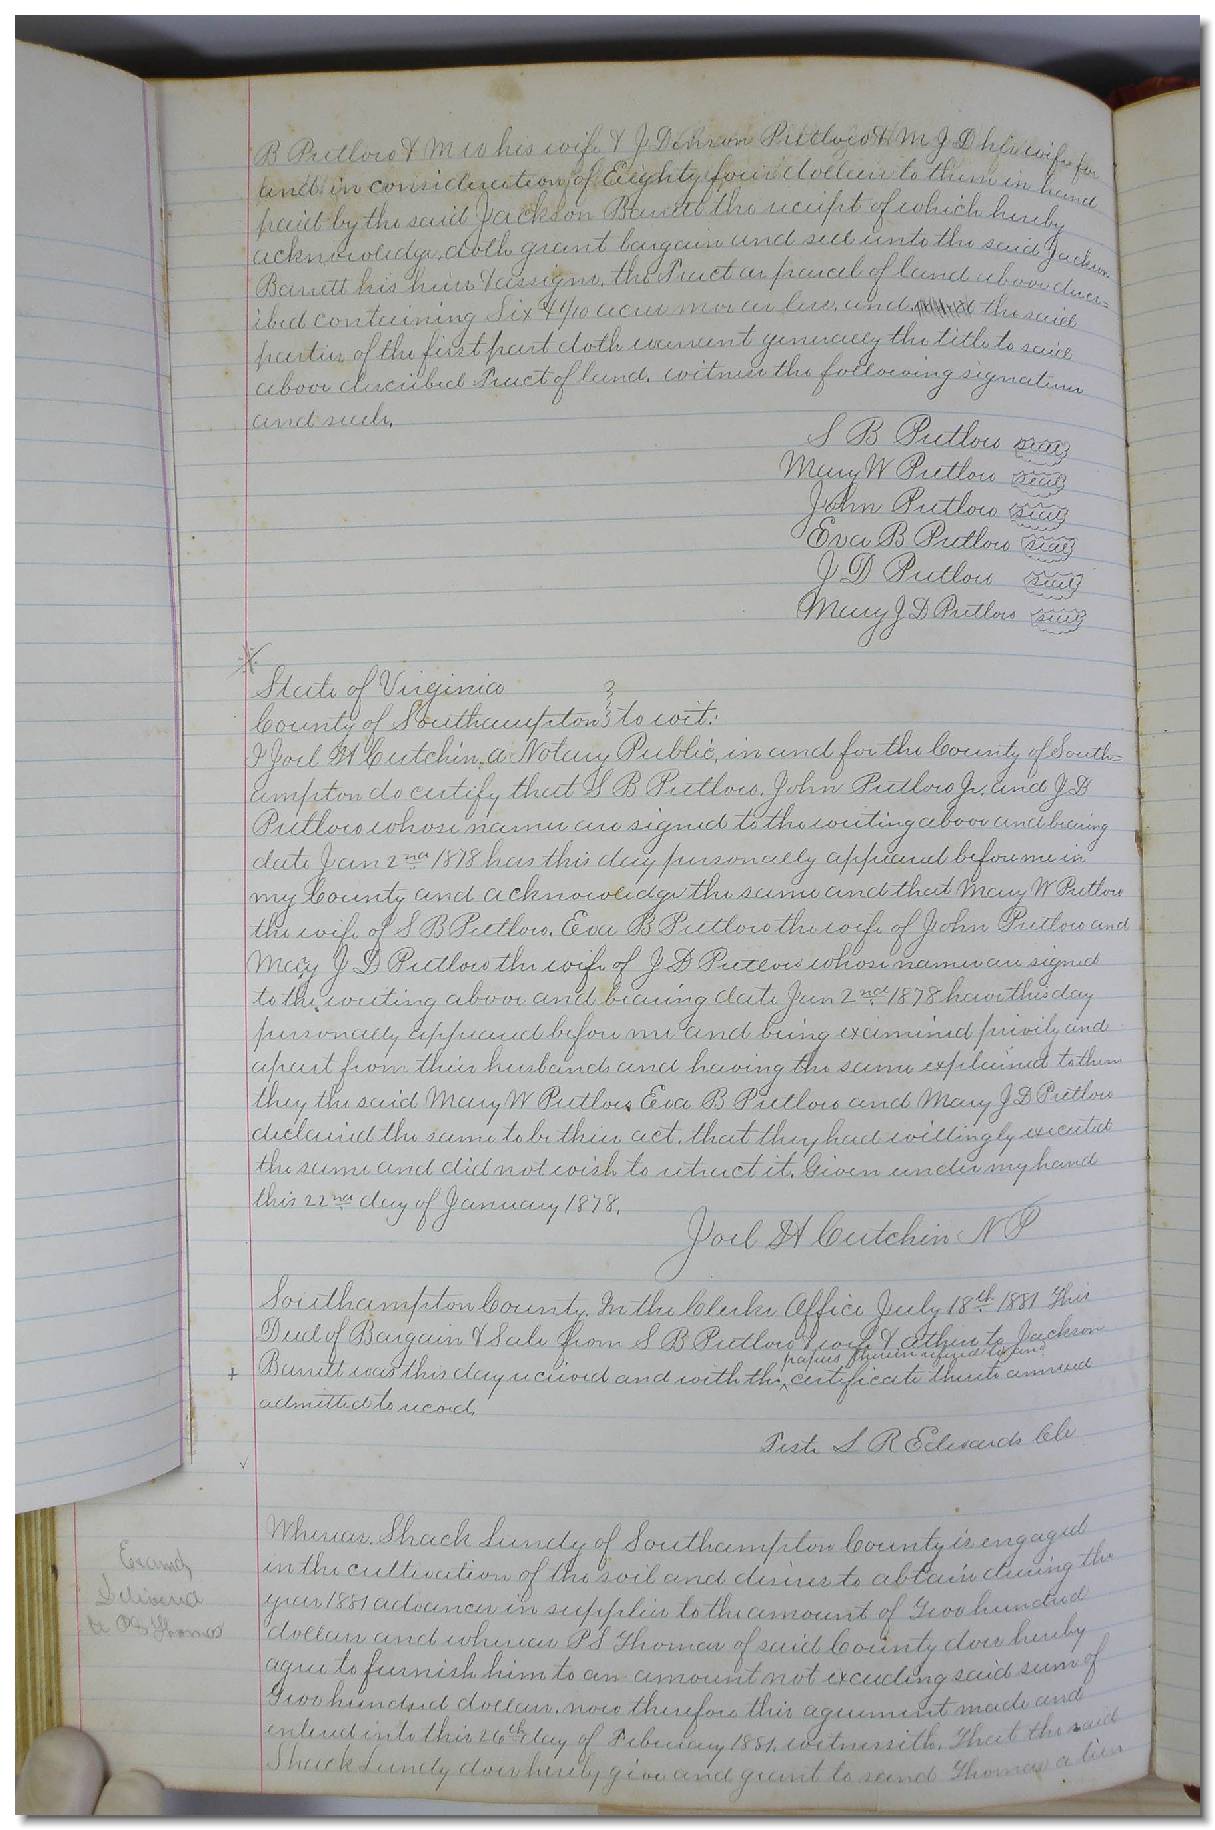 B Pretlow & M W his wife & J Denson Pretlow & M J D his wife for
and in consideration of Eighty four dollars to them in hand
paid by the said Jackson Barrett the receipt of which hereby
acknowledge, doth grant bargain and sell unto the said Jackson
Barrett his heirs & assigns, the Tract or parcel of land above descr=
ibed containing Six 4/10 acres more or less, and the said
parties of the first part doth warrant generally the title to said
above described Tract of land. witness the following signatures
and seals.
S B Pretlow seal
Mary W Pretlow seal
John Pretlow seal
Eva B Pretlow seal
J D Pretlow seal
Mary J D Pretlow seal
State of Virginia
County of Southampton to wit:
I Joel H Cutchin, a Notary Public, in and for the County of South=
ampton do certify that S B Pretlow, John Pretlow Jr. and J D
Pretlow whose names are signed to the writing above and bearing
date Jan 2nd 1878 has this day personally appeared before me in
my County and acknowledge the same and that Mary W Pretlow
the wife of S B Pretlow, Eva B Pretlow the wife of John Pretlow and
Mary J D Pretlow the wife of J D Pretlow whose names are signed
to the writing above and bearing date Jan 2nd 1878 have this day
personally appeared before me and being examined privily and
apart from their husbands and having the same explained to them
they the said Mary W Pretlow, Eva B Pretlow and Mary J D Pretlow
declared the same to be their act, that they had willingly executed
the same and did not wish to retract it. Given under my hand
this 22nd day of January 1878.
Joel H Cutchin N P
Southampton County. In the Clerks Office July 18th 1881 This
Deed of Bargain & Sale from S B Pretlow & wife & others to Jackson
papers therein referred to and
Barrett was this day received and with the certificate thereto annexed
admitted to record.
Teste S R Edwards Clk
Examd
Delivered
to P S Thomas
Whereas Shack Lundy of Southampton County is engaged
in the cultivation of the soil and desires to obtain during the
year 1881 advances in supplies to the amount of Two hundred
dollars and whereas P S Thomas of said County does hereby
agree to furnish him to an amount not exceeding said sum of
Two hundred dollars, now therefore this agreement made and
entered into this 26th day of February 1881, witnesseth, That the said
Shack Lundy does hereby give and grant to said Thomas a lien